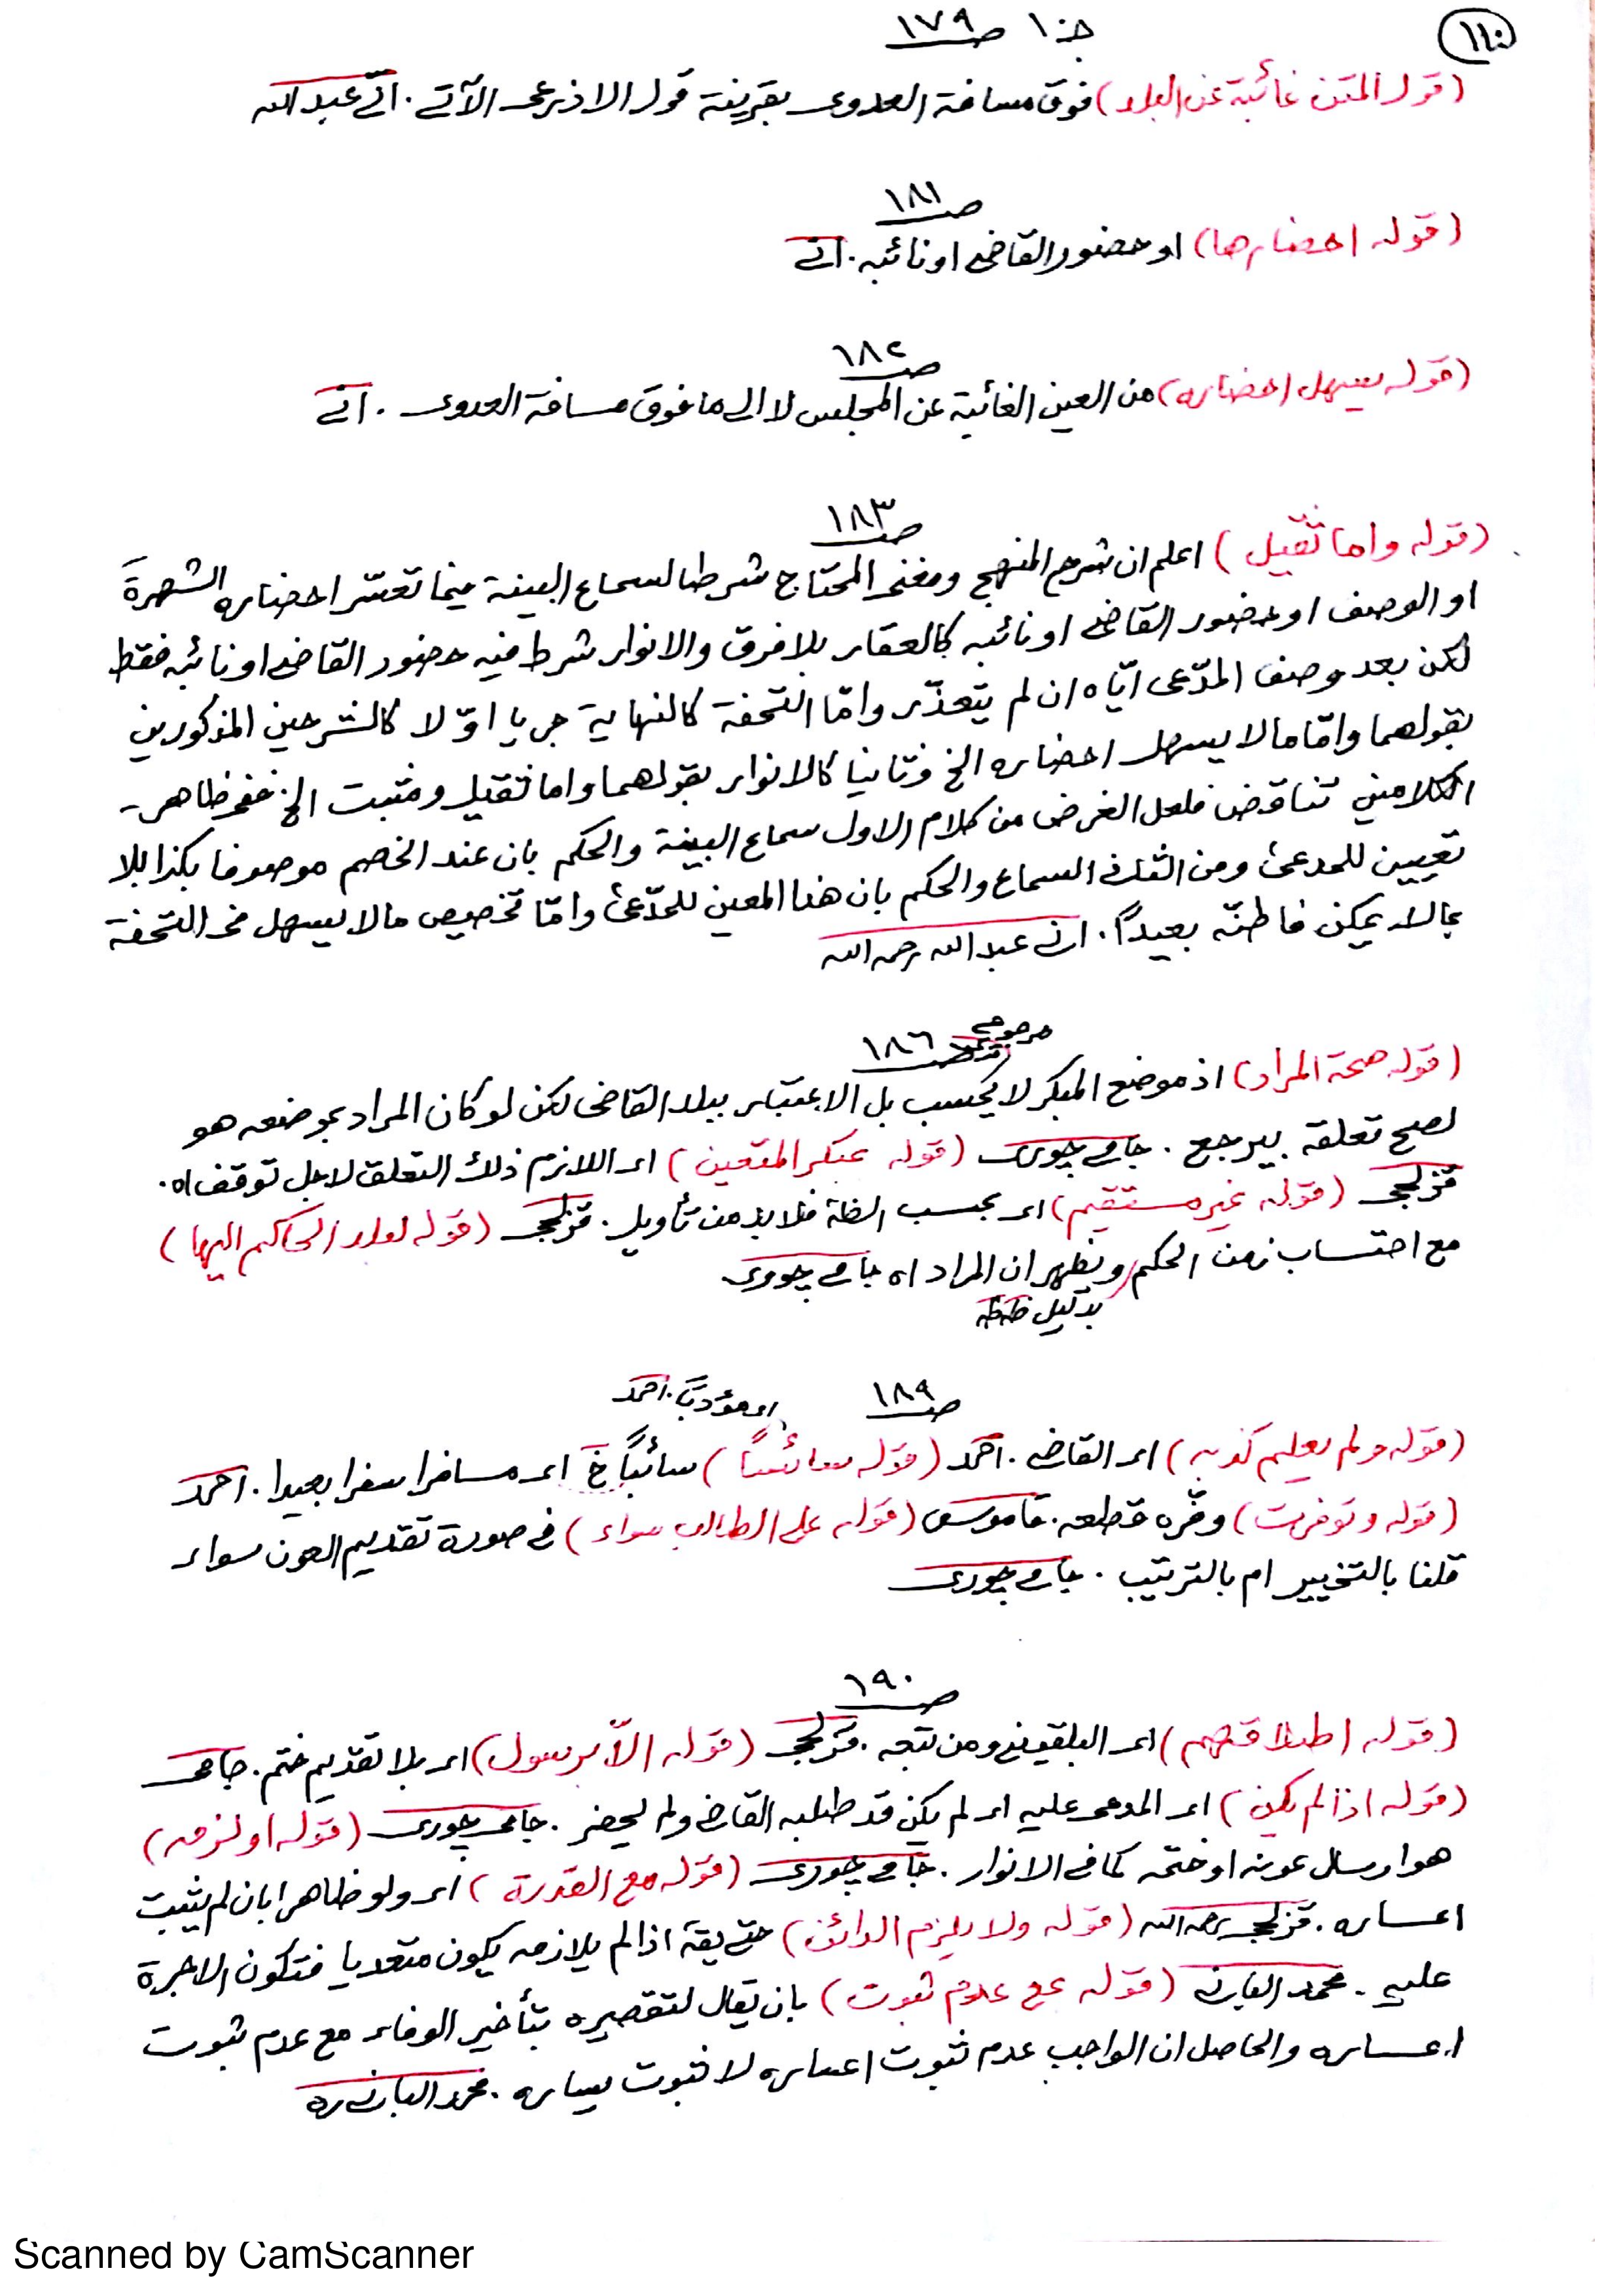 ١١٠
جـ ١٠ صـ ١٧٩
(قوله المتن غائبة عن البلد) فوق مسافة العدوى بقرينة قول الاذرعى الآتى . انى عبد الله
صـ ١٨١
(قوله احضارها) او حضور القاضى او نائبه . انى
صـ ١٨٢
(قوله يسهل احضاره) من العين الغائبة عن المجلس لا الى ما فوق مسافة العدوى . انى
صـ ١٨٣
(قوله واما ثقيل) اعلم ان شرح المنهج ومغنى المحتاج شرطا لسماع البينة فيما تعسّر احضاره الشهرة
او الوصف او حضور القاضى او نائبه كالعقار بلا فرق والانوار شرط فيه حضور القاضى او نائبه فقط
لكن بعد وصف المدّعى ايّاه ان لم يتعذّر وامّا التحفة كالنهاية جريا اوّلا كالشرحين المذكورين
بقولهما وامّا ما لا يسهل احضاره الخ وثانيا كالانوار بقولهما واما ثقيل ومثبت الخ ففى ظاهر
الكلامين تناقض فلعل الغرض من كلام الاول سماع البينة والحكم بان عند الخصم موصوفا بكذا بلا
تعيين للمدعى ومن الثانى السماع والحكم بان هذا المعين للمدّعى وامّا تخصيص ما لا يسهل فى التحفة
يمكن فاظنّه بعيداً . انى عبد الله رحمه الله
صـ ١٨٦
(قوله صحة المراد) اذ موضع المبكر لا يحسب بل الاعتبار ببلد القاضى لكن لو كان المراد بموضعه هو
لصح تعلقه بيرجع . جامى چورى (قوله عنكر المتعين) اى اللازم ذلك التعلق لاجل توقف اه .
قزلجى (قوله غير مستقيم) اى بحسب الظ فلا بد من تأويل . قزلجى (قوله لولد الحاكم اليها)
مع احتساب زمن الحكم ويظهر ان المراد اه جامى چورى
بدليل
صـ ١٨٩
اى مؤدبا . احمد
(قوله ولم يعلم كذبه) اى القاضى . احمد (قوله سائسًا) سائبًا خ اى مسافرا سفرا بعيدا . احمد
(قوله وتوفرت) وفّره قطعه . قاموس (قوله على الطالب سواء) فى صورة تقديم العون سواء
قلنا بالتخيير ام بالترتيب . جامى چورى
صـ ١٩٠
(قوله اطلاقهم) اى البلقينى ومن تبعه . قزلجى (قوله الّا برسول) اى بلا تقديم ختم . جامى
(قوله اذا لم يكن) اى المدعى عليه اى لم يكن قد طلبه القاضى ولم يحضر . جامى چورى (قوله او لزمه)
هو ارسال عونه او ختمه كما فى الانوار . جامى چورى (قوله مع القدرة) اى ولو ظاهرا بان لم يثبت
اعساره . قزلجى رحمه الله (قوله ولا يلزم الدائن) حتى يقة اذا لم يلازمه يكون متعديا فتكون الاجرة
عليه . محمد البانى (قوله عن عدم ثبوت) بان يقال لتقصيره بتأخير الوفاء مع عدم ثبوت
اعساره والحاصل ان الواجب عدم ثبوت اعساره لا ثبوت يساره . محمد البانى ره
Scanned by CamScanner